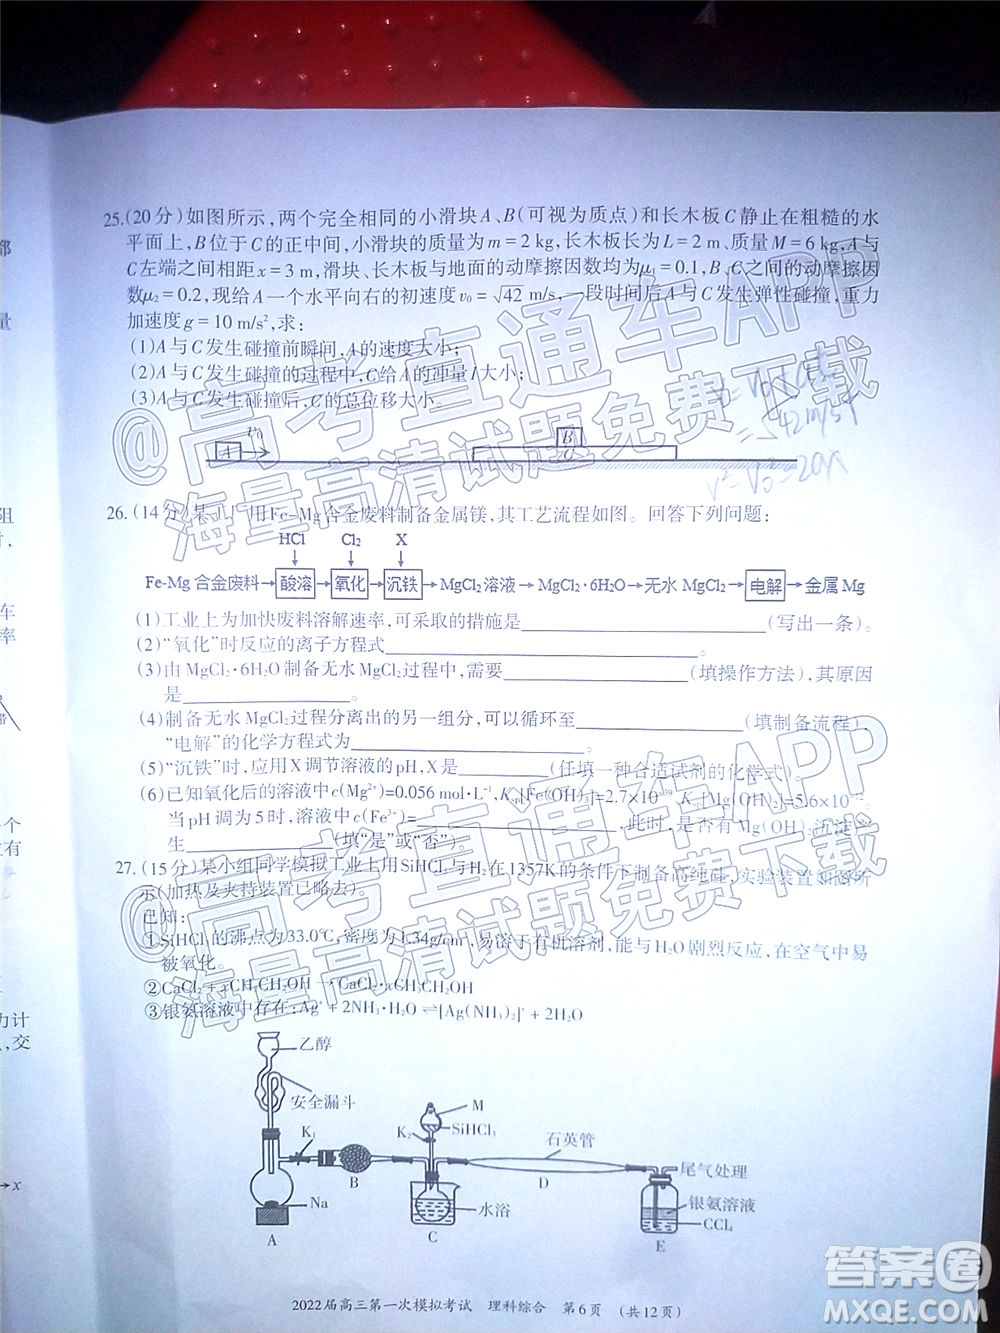 25.(20分)如图所示,两个完全相同的小滑块A、B(可视为质点)和长木板C静止在粗糙的水
平面上,B位于C的正中间,小滑块的质量为m=2 kg,长木板长为L=2 m、质量M=6 kg,A与
C左端之间相距x=3 m,滑块、长木板与地面的动摩擦因数均为μ₁=0.1,B、C之间的动摩擦因
数μ₂=0.2,现给A一个水平向右的初速度v₀=√42 m/s,一段时间后A与C发生弹性碰撞,重力
加速度g=10 m/s²,求:
(1)A与C发生碰撞前瞬间,A的速度大小;
(2)A与C发生碰撞的过程中,C给A的冲量I大小;
(3)A与C发生碰撞后,C的总位移大小。
A v₀ B C
26.(14分)某工厂用Fe-Mg合金废料制备金属镁,其工艺流程如图。回答下列问题:
HCl Cl₂ X
Fe-Mg合金废料→酸溶→氧化→沉铁→MgCl₂溶液→MgCl₂·6H₂O→无水MgCl₂→电解→金属Mg
(1)工业上为加快废料溶解速率,可采取的措施是____(写出一条)。
(2)“氧化”时反应的离子方程式____。
(3)由MgCl₂·6H₂O制备无水MgCl₂过程中,需要____(填操作方法),其原因
是____。
(4)制备无水MgCl₂过程分离出的另一组分,可以循环至____(填制备流程),
“电解”的化学方程式为____。
(5)“沉铁”时,应用X调节溶液的pH,X是____(任填一种合适试剂的化学式)。
(6)已知氧化后的溶液中c(Mg²⁺)=0.056 mol·L⁻¹,Ksp[Fe(OH)₃]=2.7×10⁻³⁹,Ksp[Mg(OH)₂]=5.6×10⁻¹²,
当pH调为5时,溶液中c(Fe³⁺)=____,此时,是否有Mg(OH)₂沉淀产
生____(填“是”或“否”)。
27.(15分)某小组同学模拟工业上用SiHCl₃与H₂在1357K的条件下制备高纯硅,实验装置如图所
示(加热及夹持装置已略去)。
已知:
①SiHCl₃的沸点为33.0℃,密度为1.34g/cm³,易溶于有机溶剂,能与H₂O剧烈反应,在空气中易
被氧化。
②CaCl₂+xCH₃CH₂OH→CaCl₂·xCH₃CH₂OH
③银氨溶液中存在:Ag⁺+2NH₃·H₂O⇌[Ag(NH₃)₂]⁺+2H₂O
乙醇
安全漏斗
K₁ K₂ M SiHCl₃
石英管
尾气处理
Na
B D
水浴
银氨溶液
CCl₄
A C E
2022届高三第一次模拟考试 理科综合 第6页 (共12页)
@高考直通车APP
海量高清试题免费下载
@高考直通车APP
海量高清试题免费下载
答案圈
MXQE.COM